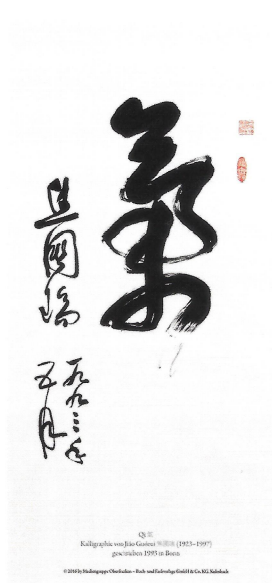 氣
焦國瑞
一九九三年
五月
Qi 氣
Kalligraphie von Jiao Guorui 焦國瑞 (1923–1997)
geschrieben 1993 in Bonn
© 2016 by Mediengruppe Oberfranken – Buch- und Fachverlage GmbH & Co. KG, Kulmbach